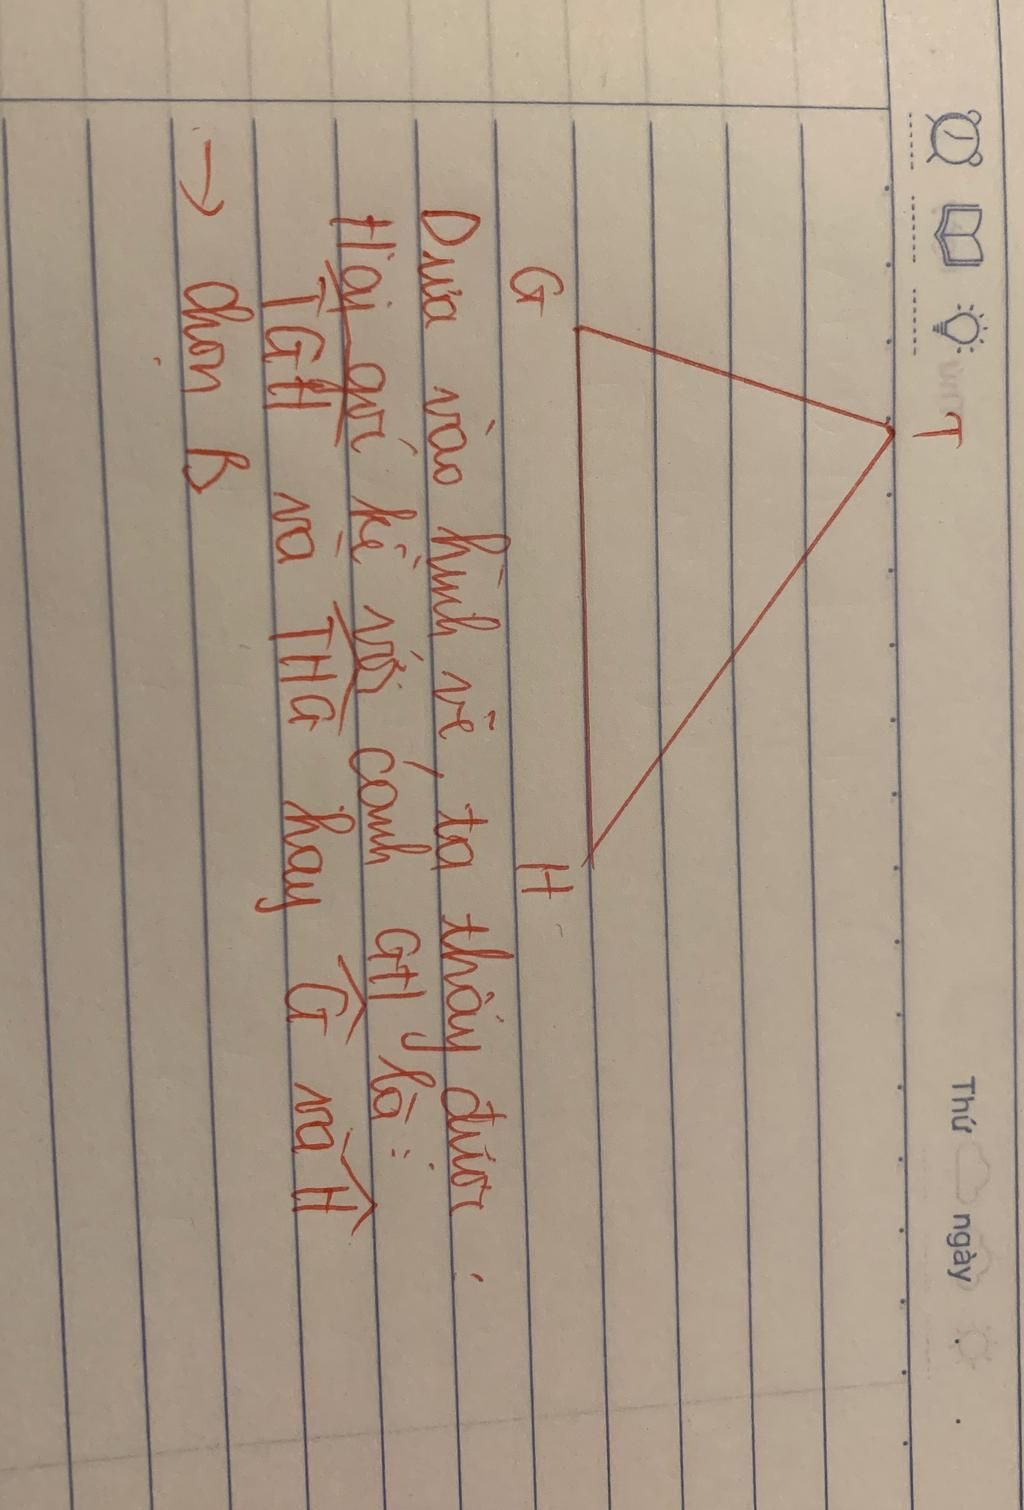 Thứ ngày
T
G
H
Dựa vào hình vẽ, ta thấy được:
Hai góc kề với cạnh GH là:
TGH và THG hay G và H
→ chọn B